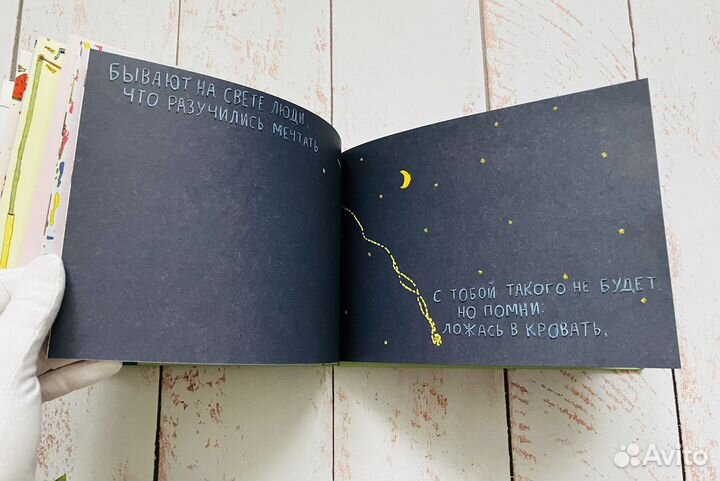 БЫВАЮТ НА СВЕТЕ ЛЮДИ,
ЧТО РАЗУЧИЛИСЬ МЕЧТАТЬ
С ТОБОЙ ТАКОГО НЕ БУДЕТ.
НО ПОМНИ:
ЛОЖАСЬ В КРОВАТЬ,
Avito